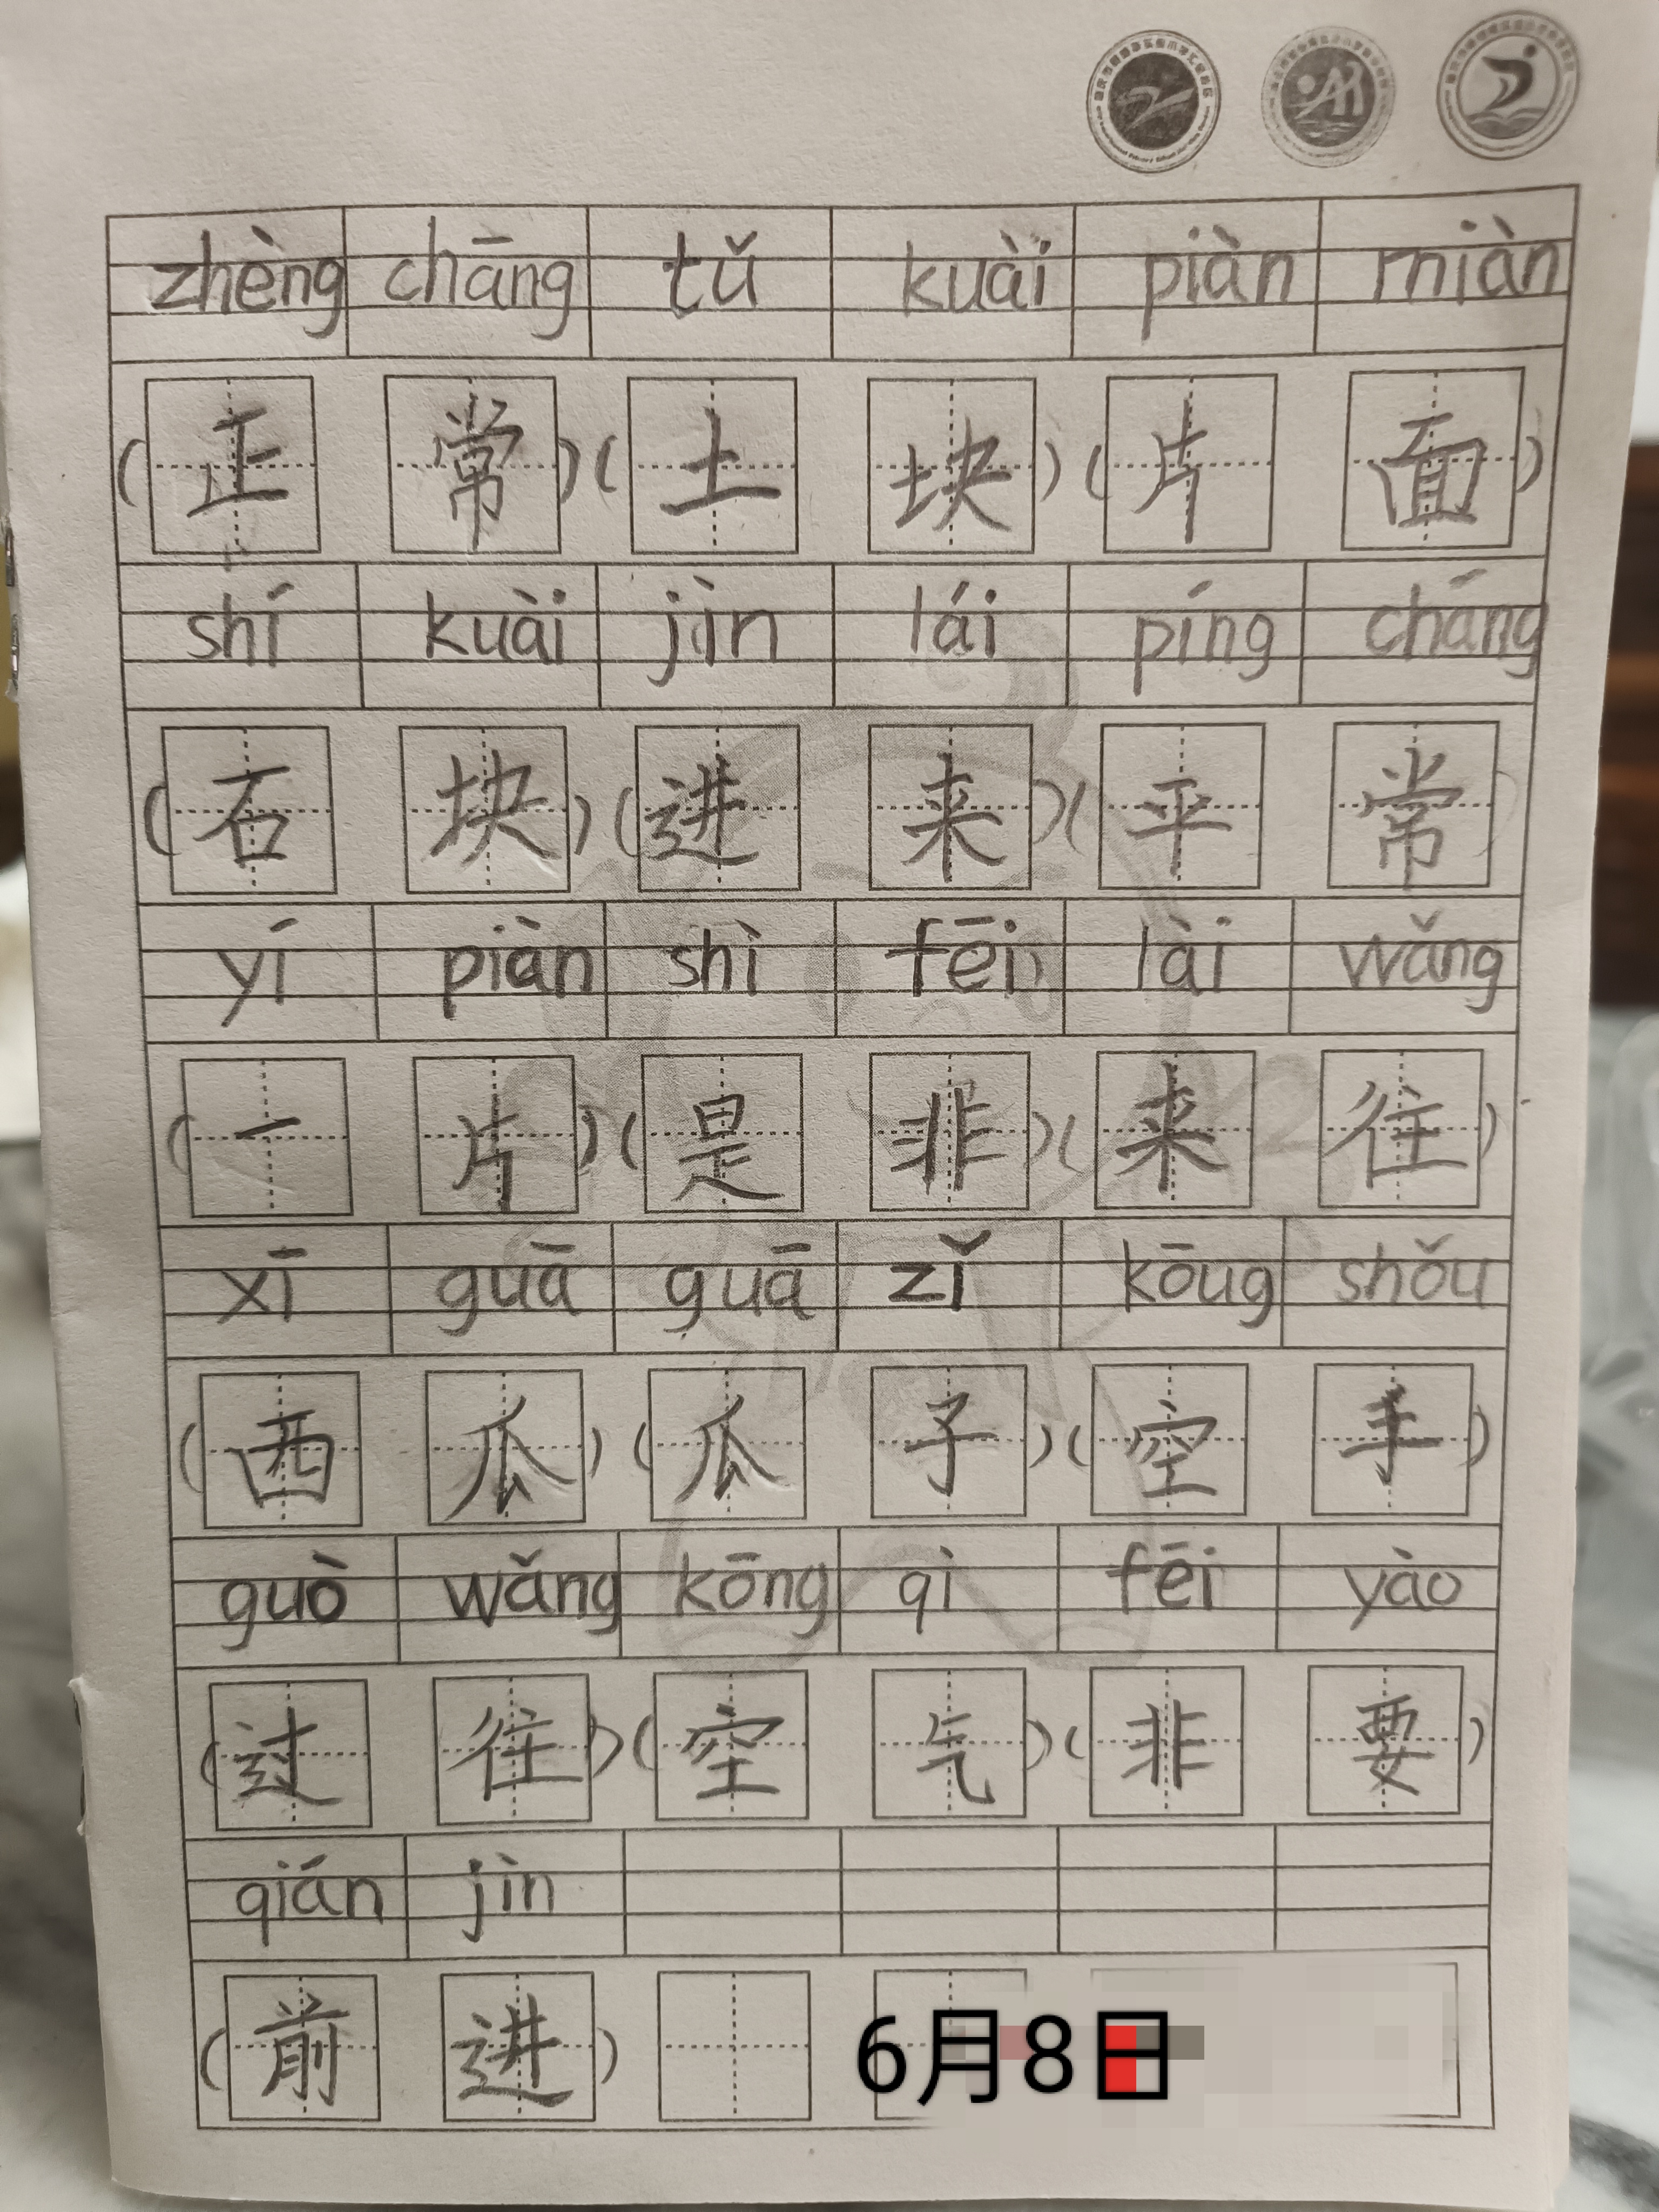 zhèng chāng tǔ kuài piàn miàn
(正常)(土块)(片面)
shí kuài jìn lái píng cháng
(石块)(进来)(平常)
yí piàn shì fēi lài wǎng
(一片)(是非)(来往)
xī guā guā zǐ kōug shǒu
(西瓜)(瓜子)(空手)
guò wǎng kōng qì fēi yào
(过往)(空气)(非要)
qián jìn
(前进)
6月8日